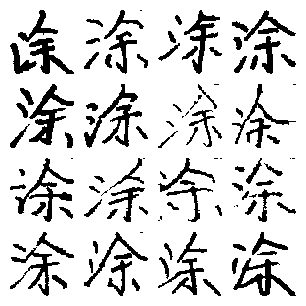 涂涂涂涂
涂涂涂涂
涂涂涂涂
涂涂涂涂